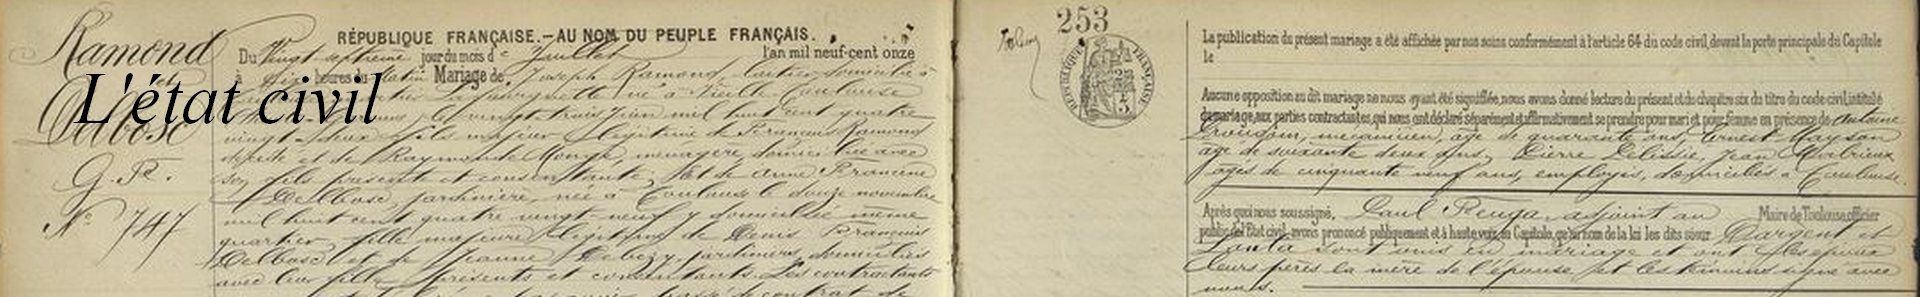 Ramond
et
Delbosc
G. R.
N° 747
L'état civil
RÉPUBLIQUE FRANÇAISE.—AU NOM DU PEUPLE FRANÇAIS.
Du Vingt septième jour du mois de Juillet l'an mil neuf-cent onze
à Six heures du Matin Mariage de Joseph Ramond,
né à Vieille Toulouse
le vingt trois Juin mil huit cent quatre
vingt-deux fils majeur légitime de François Ramond
et de Raymonde Monge, ménagère domiciliée avec
son fils présente et consentante, Et de Anne Francine
Delbosc, jardinière, née à Toulouse le douze novembre
mil huit cent quatre vingt-neuf y domiciliée même
quartier, fille majeure légitime de Denis François
Delbosc et de Jeanne Debezy, jardiniers, domiciliés
avec leur fille présents et consentants. Les contractants
contrat de
253
RÉPUBLIQUE FRANÇAISE
La publication du présent mariage a été affichée par nos soins conformément à l'article 64 du code civil, devant la porte principale du Capitole
le
Aucune opposition au dit mariage ne nous ayant été signifiée, nous avons donné lecture du présent et du chapitre six du titre du code civil, intitulé
du mariage, aux parties contractantes, qui nous ont déclaré séparément et affirmativement se prendre pour mari et pour femme en présence de Antoine
mécanicien, âgé de quarante ans, Ernest Mayson
âgé de soixante deux ans, Pierre Delissie, Jean
âgés de cinquante neuf ans, employés, domiciliés à Toulouse.
Après quoi nous soussigné, Paul Feuga, adjoint au Maire de Toulouse, officier
public de l'Etat civil, avons prononcé publiquement et à haute voix, au Capitole, qu'au nom de la loi les dits sieur Dargent et
Lanta sont unis en mariage et ont les époux
leurs pères la mère de l'épouse et les témoins signé avec
nous.